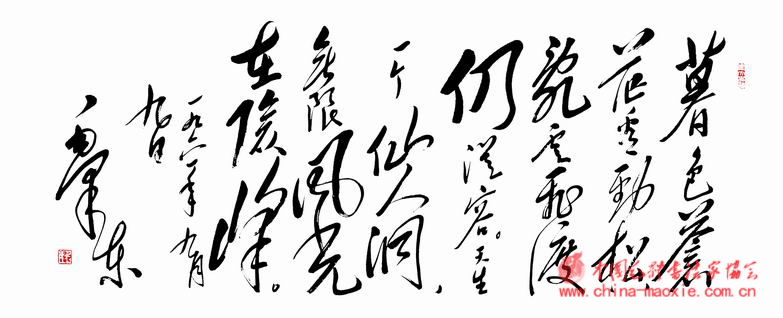 暮色蒼
茫看勁松，
亂雲飛渡
仍從容。天生
一个仙人洞，
無限風光
在險峰。
一九六一年九月
九日
毛澤東
中国毛体书法家协会
www.china-maoxie.com.cn